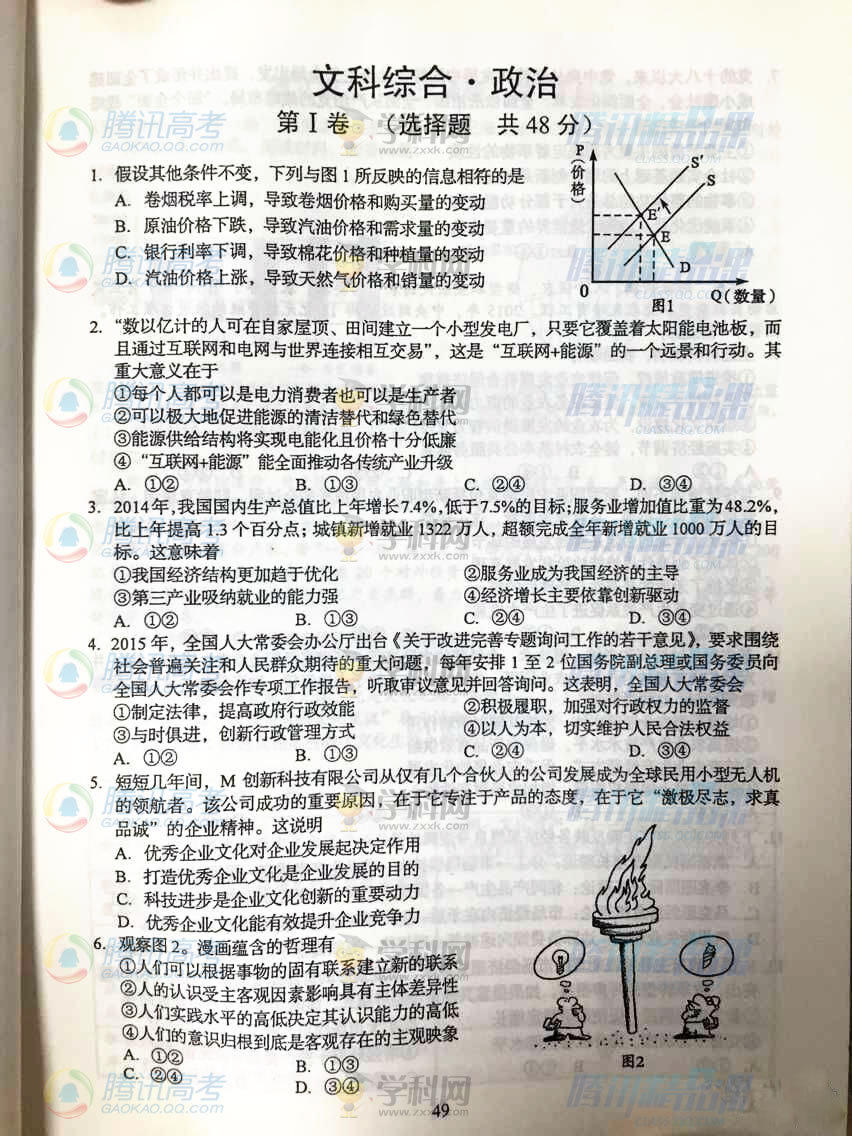 文科综合·政治
第Ⅰ卷 （选择题 共48分）
1. 假设其他条件不变，下列与图1所反映的信息相符的是
A. 卷烟税率上调，导致卷烟价格和购买量的变动
B. 原油价格下跌，导致汽油价格和需求量的变动
C. 银行利率下调，导致棉花价格和种植量的变动
D. 汽油价格上涨，导致天然气价格和销量的变动
P（价格）
S′
S
E′
E
D
0
Q（数量）
图1
2. “数以亿计的人可在自家屋顶、田间建立一个小型发电厂，只要它覆盖着太阳能电池板，而
且通过互联网和电网与世界连接相互交易”，这是“互联网+能源”的一个远景和行动。其
重大意义在于
①每个人都可以是电力消费者也可以是生产者
②可以极大地促进能源的清洁替代和绿色替代
③能源供给结构将实现电能化且价格十分低廉
④“互联网+能源”能全面推动各传统产业升级
A. ①② B. ①③ C. ②④ D. ③④
3. 2014年，我国国内生产总值比上年增长7.4%，低于7.5%的目标；服务业增加值比重为48.2%，
比上年提高1.3个百分点；城镇新增就业1322万人，超额完成全年新增就业1000万人的目
标。这意味着
①我国经济结构更加趋于优化 ②服务业成为我国经济的主导
③第三产业吸纳就业的能力强 ④经济增长主要依靠创新驱动
A. ①② B. ①③ C. ②④ D. ③④
4. 2015年，全国人大常委会办公厅出台《关于改进完善专题询问工作的若干意见》，要求围绕
社会普遍关注和人民群众期待的重大问题，每年安排1至2位国务院副总理或国务委员向
全国人大常委会作专项工作报告，听取审议意见并回答询问。这表明，全国人大常委会
①制定法律，提高政府行政效能 ②积极履职，加强对行政权力的监督
③与时俱进，创新行政管理方式 ④以人为本，切实维护人民合法权益
A. ①② B. ①③ C. ②④ D. ③④
5. 短短几年间，M创新科技有限公司从仅有几个合伙人的公司发展成为全球民用小型无人机
的领航者。该公司成功的重要原因，在于它专注于产品的态度，在于它“激极尽志，求真
品诚”的企业精神。这说明
A. 优秀企业文化对企业发展起决定作用
B. 打造优秀企业文化是企业发展的目的
C. 科技进步是企业文化创新的重要动力
D. 优秀企业文化能有效提升企业竞争力
6. 观察图2。漫画蕴含的哲理有
①人们可以根据事物的固有联系建立新的联系
②人的认识受主客观因素影响具有主体差异性
③人们实践水平的高低决定其认识能力的高低
④人们的意识归根到底是客观存在的主观映象
A. ①② B. ①③
C. ②④ D. ③④
图2
49
腾讯高考
GAOKAO.QQ.COM
学科网
www.zxxk.com
腾讯精品课
CLASS.QQ.COM